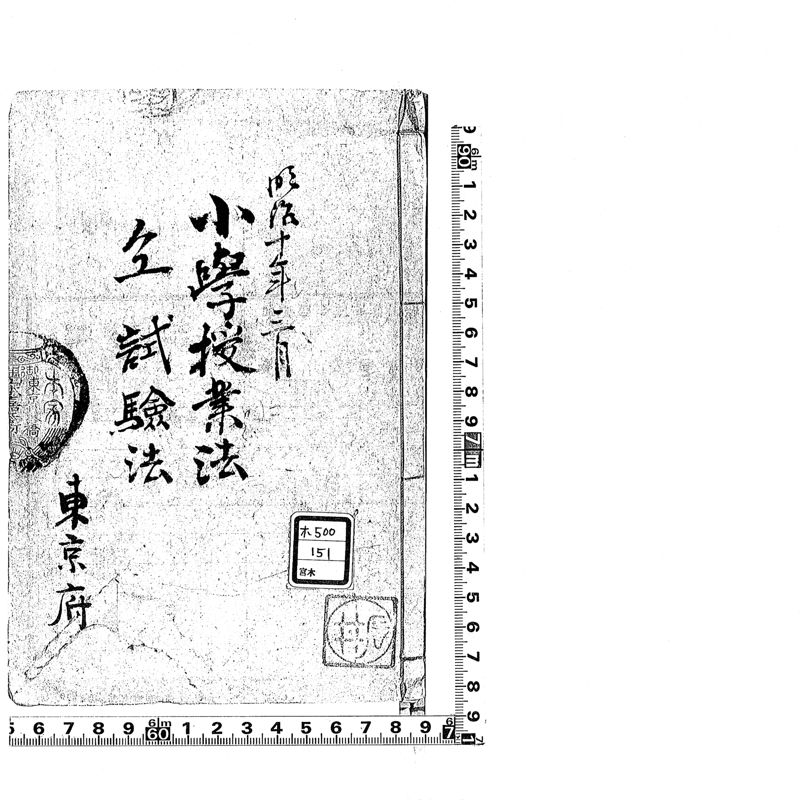 明治十年三月
小學授業法
仝試驗法
東京府
木500
151
宮木
6m
90 1 2 3 4 5 6 7 8 9 7m 1 2 3 4 5 6 7 8 9
5 6 7 8 9 60 1 2 3 4 5 6 7 8 9
6m